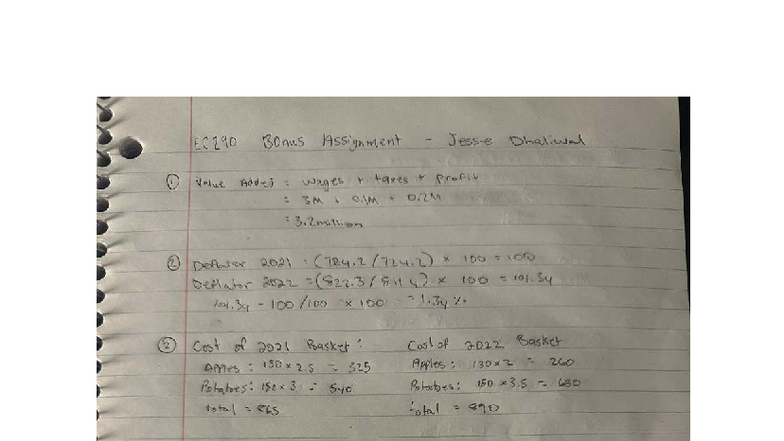 EC290 Bonus Assignment - Jessie Dhaliwal
① Value Added = wages + taxes + profit
= 3M + 0.1M + 0.2M
= 3.2million
② Deflator 2021 = (724.2/724.2) × 100 = 100
Deflator 2022 = (822.3/811.4) × 100 = 101.34
101.34 - 100/100 × 100 = 1.34%
③ Cost of 2021 Basket: Cost of 2022 Basket
Apples: 130 × 2.5 = 325 Apples: 130 × 2 = 260
Potatoes: × 3 = 540 Potatoes: × 3.5 = 630
total = 865 total = 890